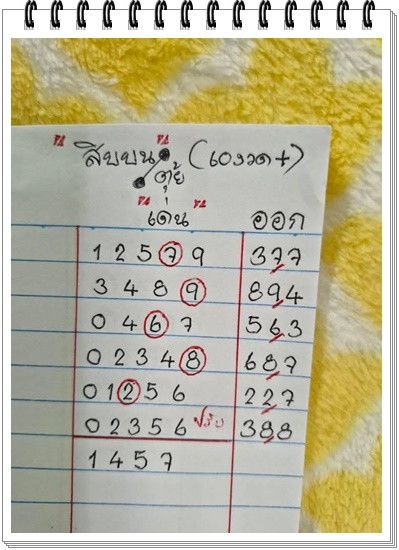 สิบบน (เองวด+)
ตุ้ย
เด่น ออก
1 2 5 7 9 377
3 4 8 9 894
0 4 6 7 563
0 2 3 4 8 687
0 1 2 5 6 227
0 2 3 5 6 388
1 4 5 7